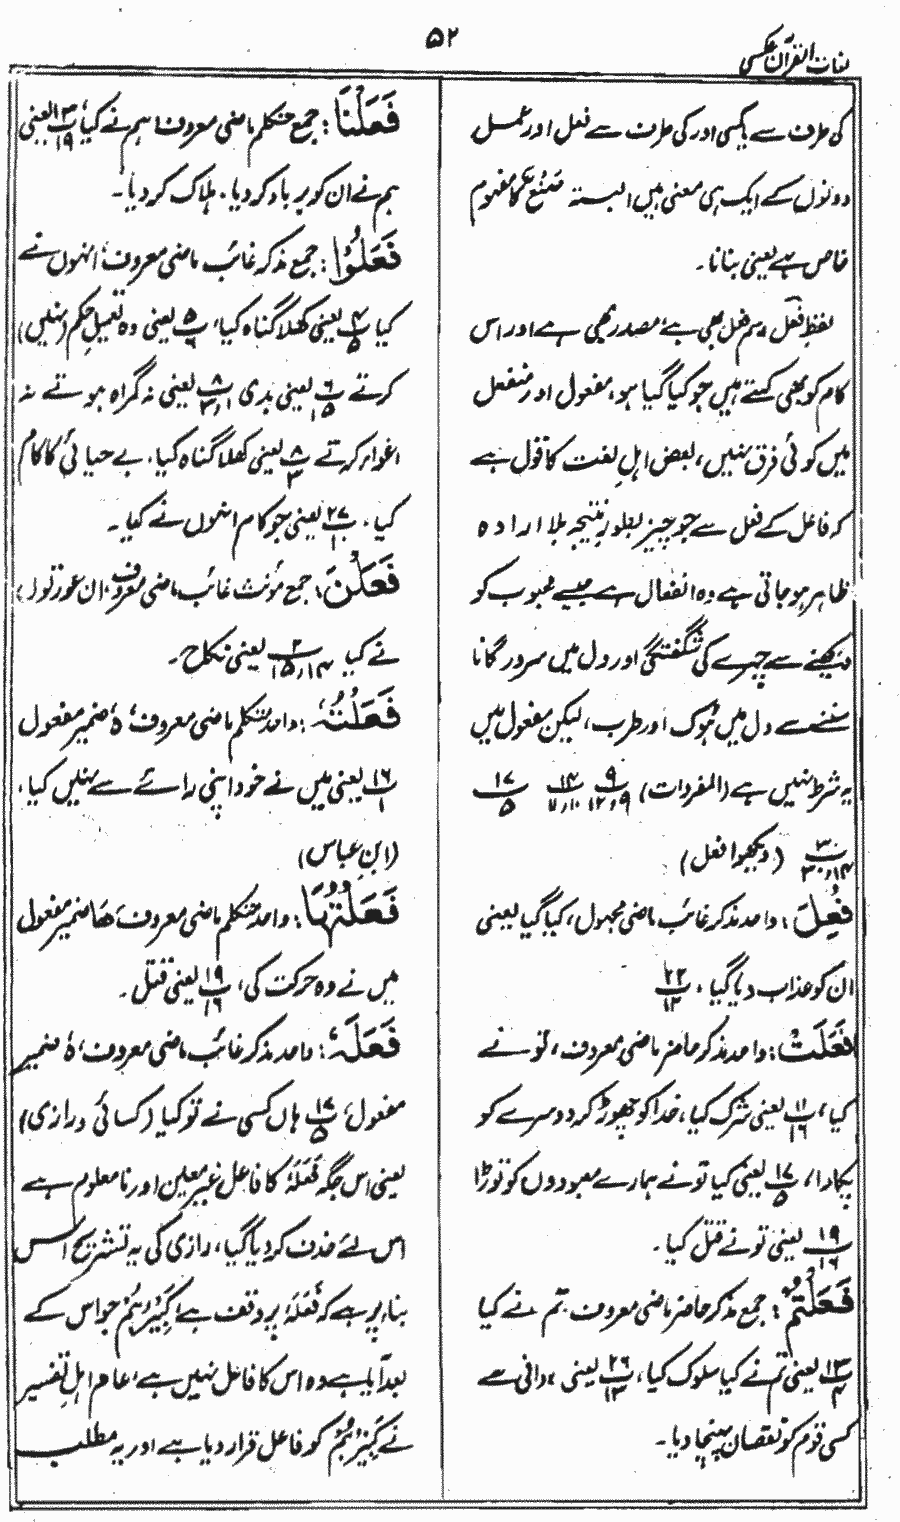 لغات القرآن عکسی
۵۲
کی طرف سے یا کسی اور کی طرف سے فعل اور عمل
دونوں کے ایک ہی معنی ہیں البتہ صُنْعٌ کا مفہوم
خاص ہے یعنی بنانا۔
لفظ فعل اسم فعل بھی ہے، مصدر بھی ہے اور اس
کام کو بھی کہتے ہیں جو کیا گیا ہو، مفعول اور منفعل
میں کوئی فرق نہیں، بعض اہلِ لغت کا قول ہے
کہ فاعل کے فعل سے جو چیز بطور نتیجہ بلا ارادہ
ظاہر ہو جاتی ہے وہ انفعال ہے جیسے محبوب کو
دیکھنے سے چہرے کی شگفتگی اور دل میں سرور گانا
سننے سے دل میں ہُوک اور طرب، لیکن مفعول میں
یہ شرط نہیں ہے (المفردات) ۹/۱۲،۹ ۱۴/۷،۱۰ ۱۷/۵
۳۰/۳۰،۱۴ (دیکھو افعل)
فُعِلَ: واحد مذکر غائب ماضی مجہول، کیا گیا یعنی
ان کو عذاب دیا گیا، ۲۲/۱۲
فَعَلْتَ: واحد مذکر حاضر ماضی معروف، تو نے
کیا، ۱۱/۱۶ یعنی شرک کیا، خدا کو چھوڑ کر دوسرے کو
پکارا، ۱۷/۵ یعنی کیا تو نے ہمارے معبودوں کو توڑا
۱۹/۱۶ یعنی تو نے قتل کیا۔
فَعَلْتُمْ: جمع مذکر حاضر ماضی معروف تم نے کیا
۱۳/۴ یعنی تم نے کیا سلوک کیا، ۲۶/۱۳ یعنی دانی سے
کسی قوم کو نقصان پہنچا دیا۔
فَعَلْنَا: جمع متکلم ماضی معروف ہم نے کیا، ۱۳/۱۹ یعنی
ہم نے ان کو برباد کر دیا۔ ہلاک کر دیا۔
فَعَلُوْا: جمع مذکر غائب ماضی معروف، انہوں نے
کیا ۴/۵ یعنی کھلا گناہ کیا، ۵/۶ یعنی وہ تعمیلِ حکم (نہیں)
کرتے ۶/۱۵ یعنی بدی ۸/۳،۱ یعنی نہ گمراہ ہوتے نہ
اغواء کرتے ۸/۲ یعنی کھلا گناہ کیا، بے حیائی کا کام
کیا۔ ۲۷/۱ یعنی جو کام انہوں نے کیا۔
فَعَلْنَ: جمع مؤنث غائب ماضی معروف، ان عورتوں
نے کیا ۲/۱۵،۱۴ یعنی نکاح۔
فَعَلْتُہٗ: واحد متکلم ماضی معروف، ہٗ ضمیر مفعول
۱۶/۱ یعنی میں نے خود اپنی رائے سے نہیں کیا،
(ابنِ عباس)
فَعَلْتُہَا: واحد متکلم ماضی معروف، ھَا ضمیر مفعول
میں نے وہ حرکت کی، ۱۹/۱۶ یعنی قتل۔
فَعَلَہٗ: واحد مذکر غائب ماضی معروف، ہٗ ضمیر
مفعول، ۱۷/۵ ہاں کسی نے تو کیا (کسائی و رازی)
یعنی اس جگہ فَعَلَہٗ کا فاعل غیر معین اور نامعلوم ہے
اس لئے حذف کر دیا گیا، رازی کی یہ تشریح اس
بناء پر ہے کہ فَعَلَہٗ پر وقف ہے، کَبِیْرُہُمْ جو اس کے
بعد آیا ہے وہ اس کا فاعل نہیں ہے، عام اہلِ تفسیر
نے کَبِیْرُہُمْ کو فاعل قرار دیا ہے اور یہ مطلب